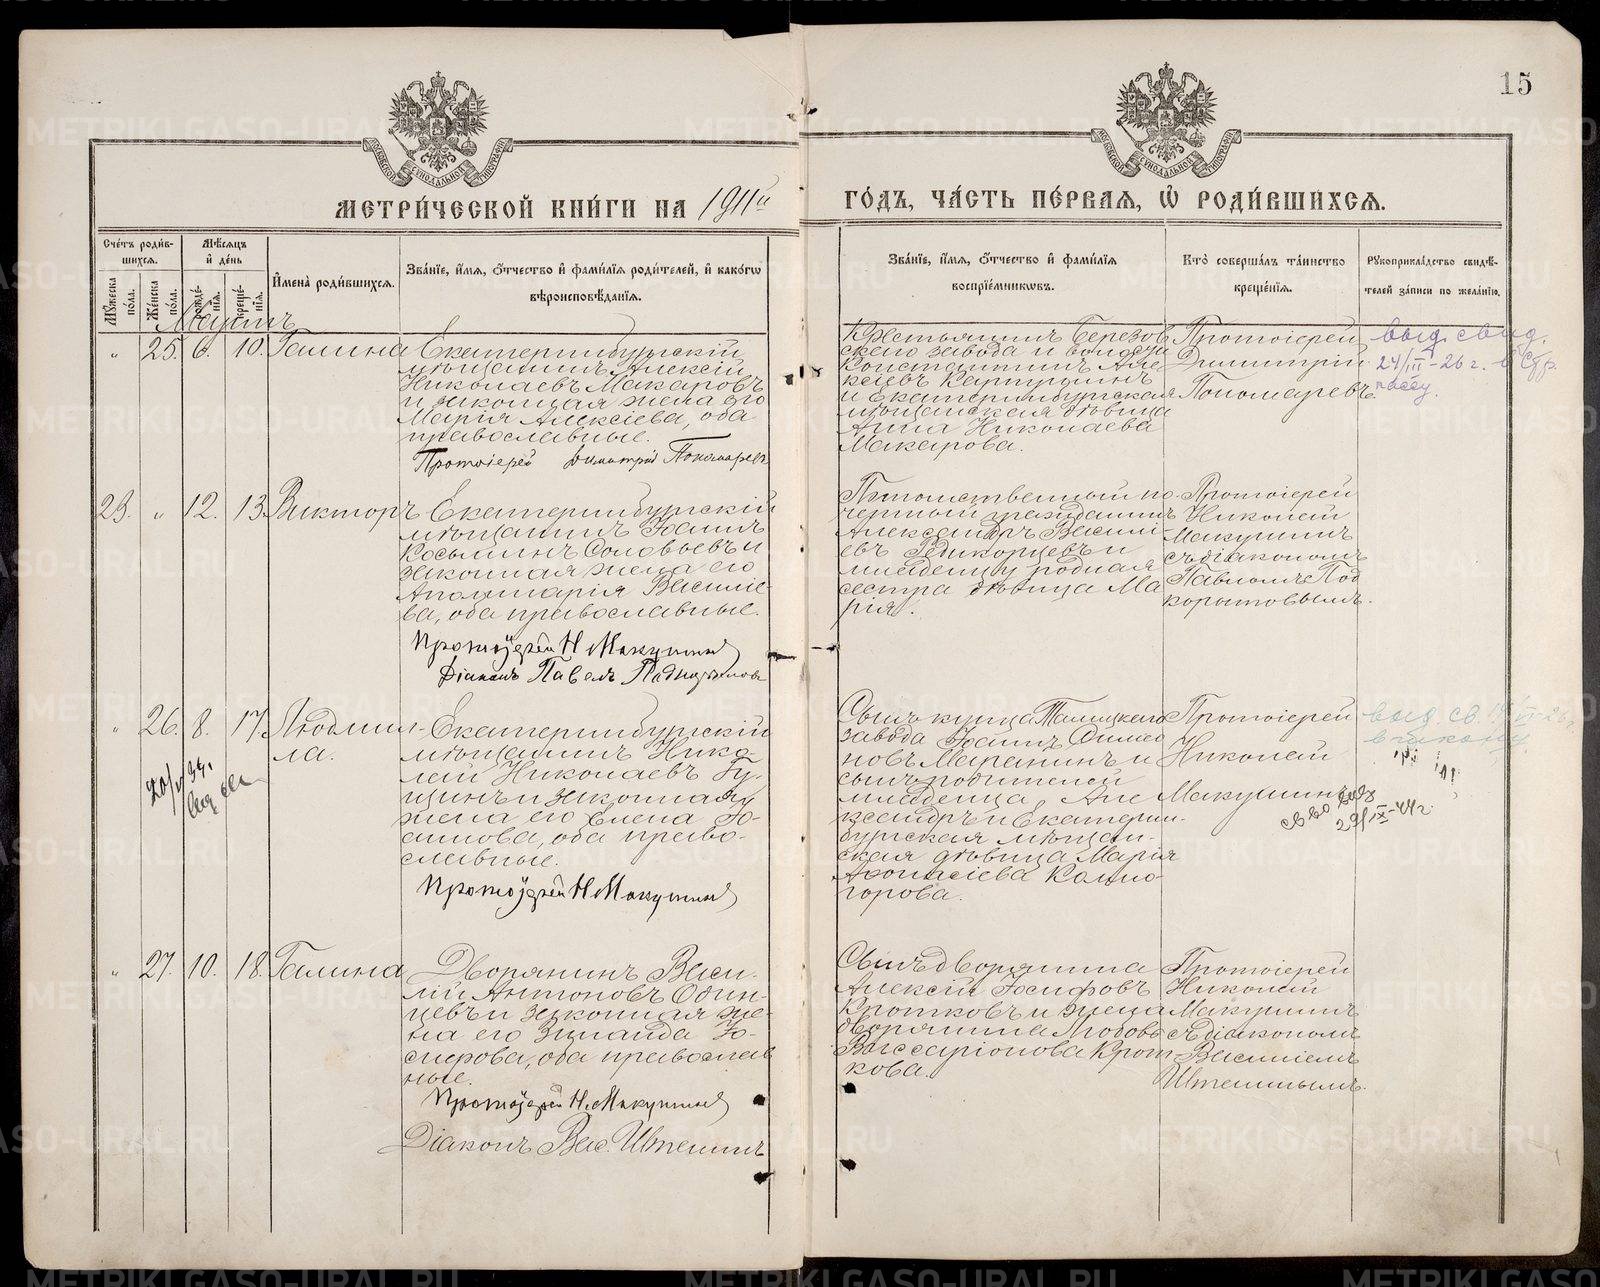 15
МЕТРИ́ЧЕСКОЙ КНИ́ГИ НА 1911й
ГО́ДЪ, ЧА́СТЬ ПЕ́РВАЯ, Ѡ РОДИ́ВШИХСЯ.
Сче́тъ роди́вшихся.
Му́жеска по́ла.
Же́нска по́ла.
Мѣ́сяцъ и́ де́нь
рожде́нїя.
креще́нїя.
И́мена̀ роди́вшихся.
Зва́нїе, и́мя, ѻ́тчество и́ фами́лїя роди́телей, и́ како́гѡ
вѣроисповѣ́данїя.
Зва́нїе, и́мя, ѻ́тчество и́ фами́лїя
воспрїе́мникѡвъ.
Кто̀ соверша́лъ та́инство
креще́нїя.
Рꙋкоприкла́дство свидѣ́-
телей за́писи по жела́нїю.
Мартъ
„ 25. 6. 10. Галина
Екатеринбургскій
мѣщанинъ Алексій
Николаевъ Макаровъ
и законная жена его
Марія Алексіева, оба
православные.
Протоіерей Димитрій Пономаревъ
Крестьянинъ Березов
скаго завода и волости
Константинъ Але
ксіевъ Картузинъ
и Екатеринбургская
мѣщанская дѣвица
Анна Николаева
Макарова.
Протоіерей
Димитрій
Пономаревъ.
выд. свид.
24/III-26 г.
29. „ 12. 13. Викторъ
Екатеринбургскій
мѣщанинъ Іоаннъ
Косьминъ Соловьевъ и
законная жена его
Аполинарія Василіе
ва, оба православные.
Протоіерей Н Макушинъ
Діаконъ Павелъ Подкорытовъ
Потомственный по
четный гражданинъ
Александръ Василі-
евъ Редикорцевъ и
младенцу родная
сестра дѣвица Ма
рія.
Протоіерей
Николай
Макушинъ
съ діакономъ
Павломъ Под
корытовымъ.
„ 26. 8. 17. Людмил-
ла.
20/V 34.
Екатеринбургскій
мѣщанинъ Нико-
лай Николаевъ Гу-
щинъ и законная
жена его Елена Іо-
аннова, оба право-
славные.
Протоіерей Н Макушинъ
Сынъ купца Талицкаго
завода Іоаннъ Симео
новъ Марьинъ и
сынъ родителей
младенца, Але
ксандръ и Екатерин-
бургская мѣщан-
ская дѣвица Марія
Аѳонасіева Калмо-
горова.
Протоіерей
Николай
Макушинъ
выд. св.
св-во выд
29/IX-44 г.
„ 27. 10. 18. Галина
Дворянинъ Васи-
лій Антоновъ Один-
цевъ и законная же-
на его Зинаида Іо-
сифова, оба православ
ные.
Протоіерей Н. Макушинъ
Діаконъ Вас. Иштенинъ
Сынъ дворянина
Алексій Іосифовъ
Кротковъ и жена
дворянина Любовь
Виссаріонова Крот-
кова.
Протоіерей
Николай
Макушинъ
съ діакономъ
Василіемъ
Иштенинымъ.
METRIKI.GASO-URAL.RU